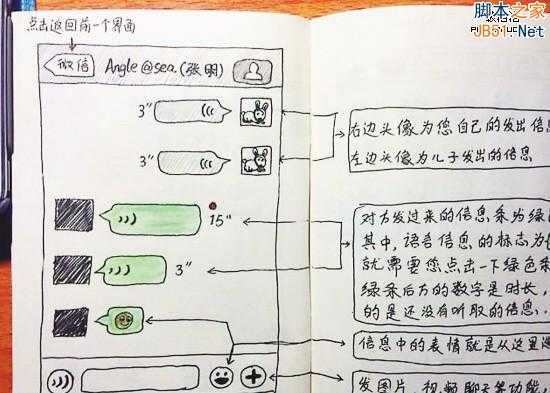 点击返回前一个界面
脚本之家
JB51.Net
微信
Angle@sea.(张明)
3"
3"
15"
3"
右边头像为您自己的发出信息
左边头像为儿子发出的信息
对方发过来的信息系为绿
其中,语音信息的标志为
就需要您点击一下绿色系
绿系后方的数字是时长,
的是还没有听取的信息..
信息中的表情就是从这里
发图片、视频聊天等功能,